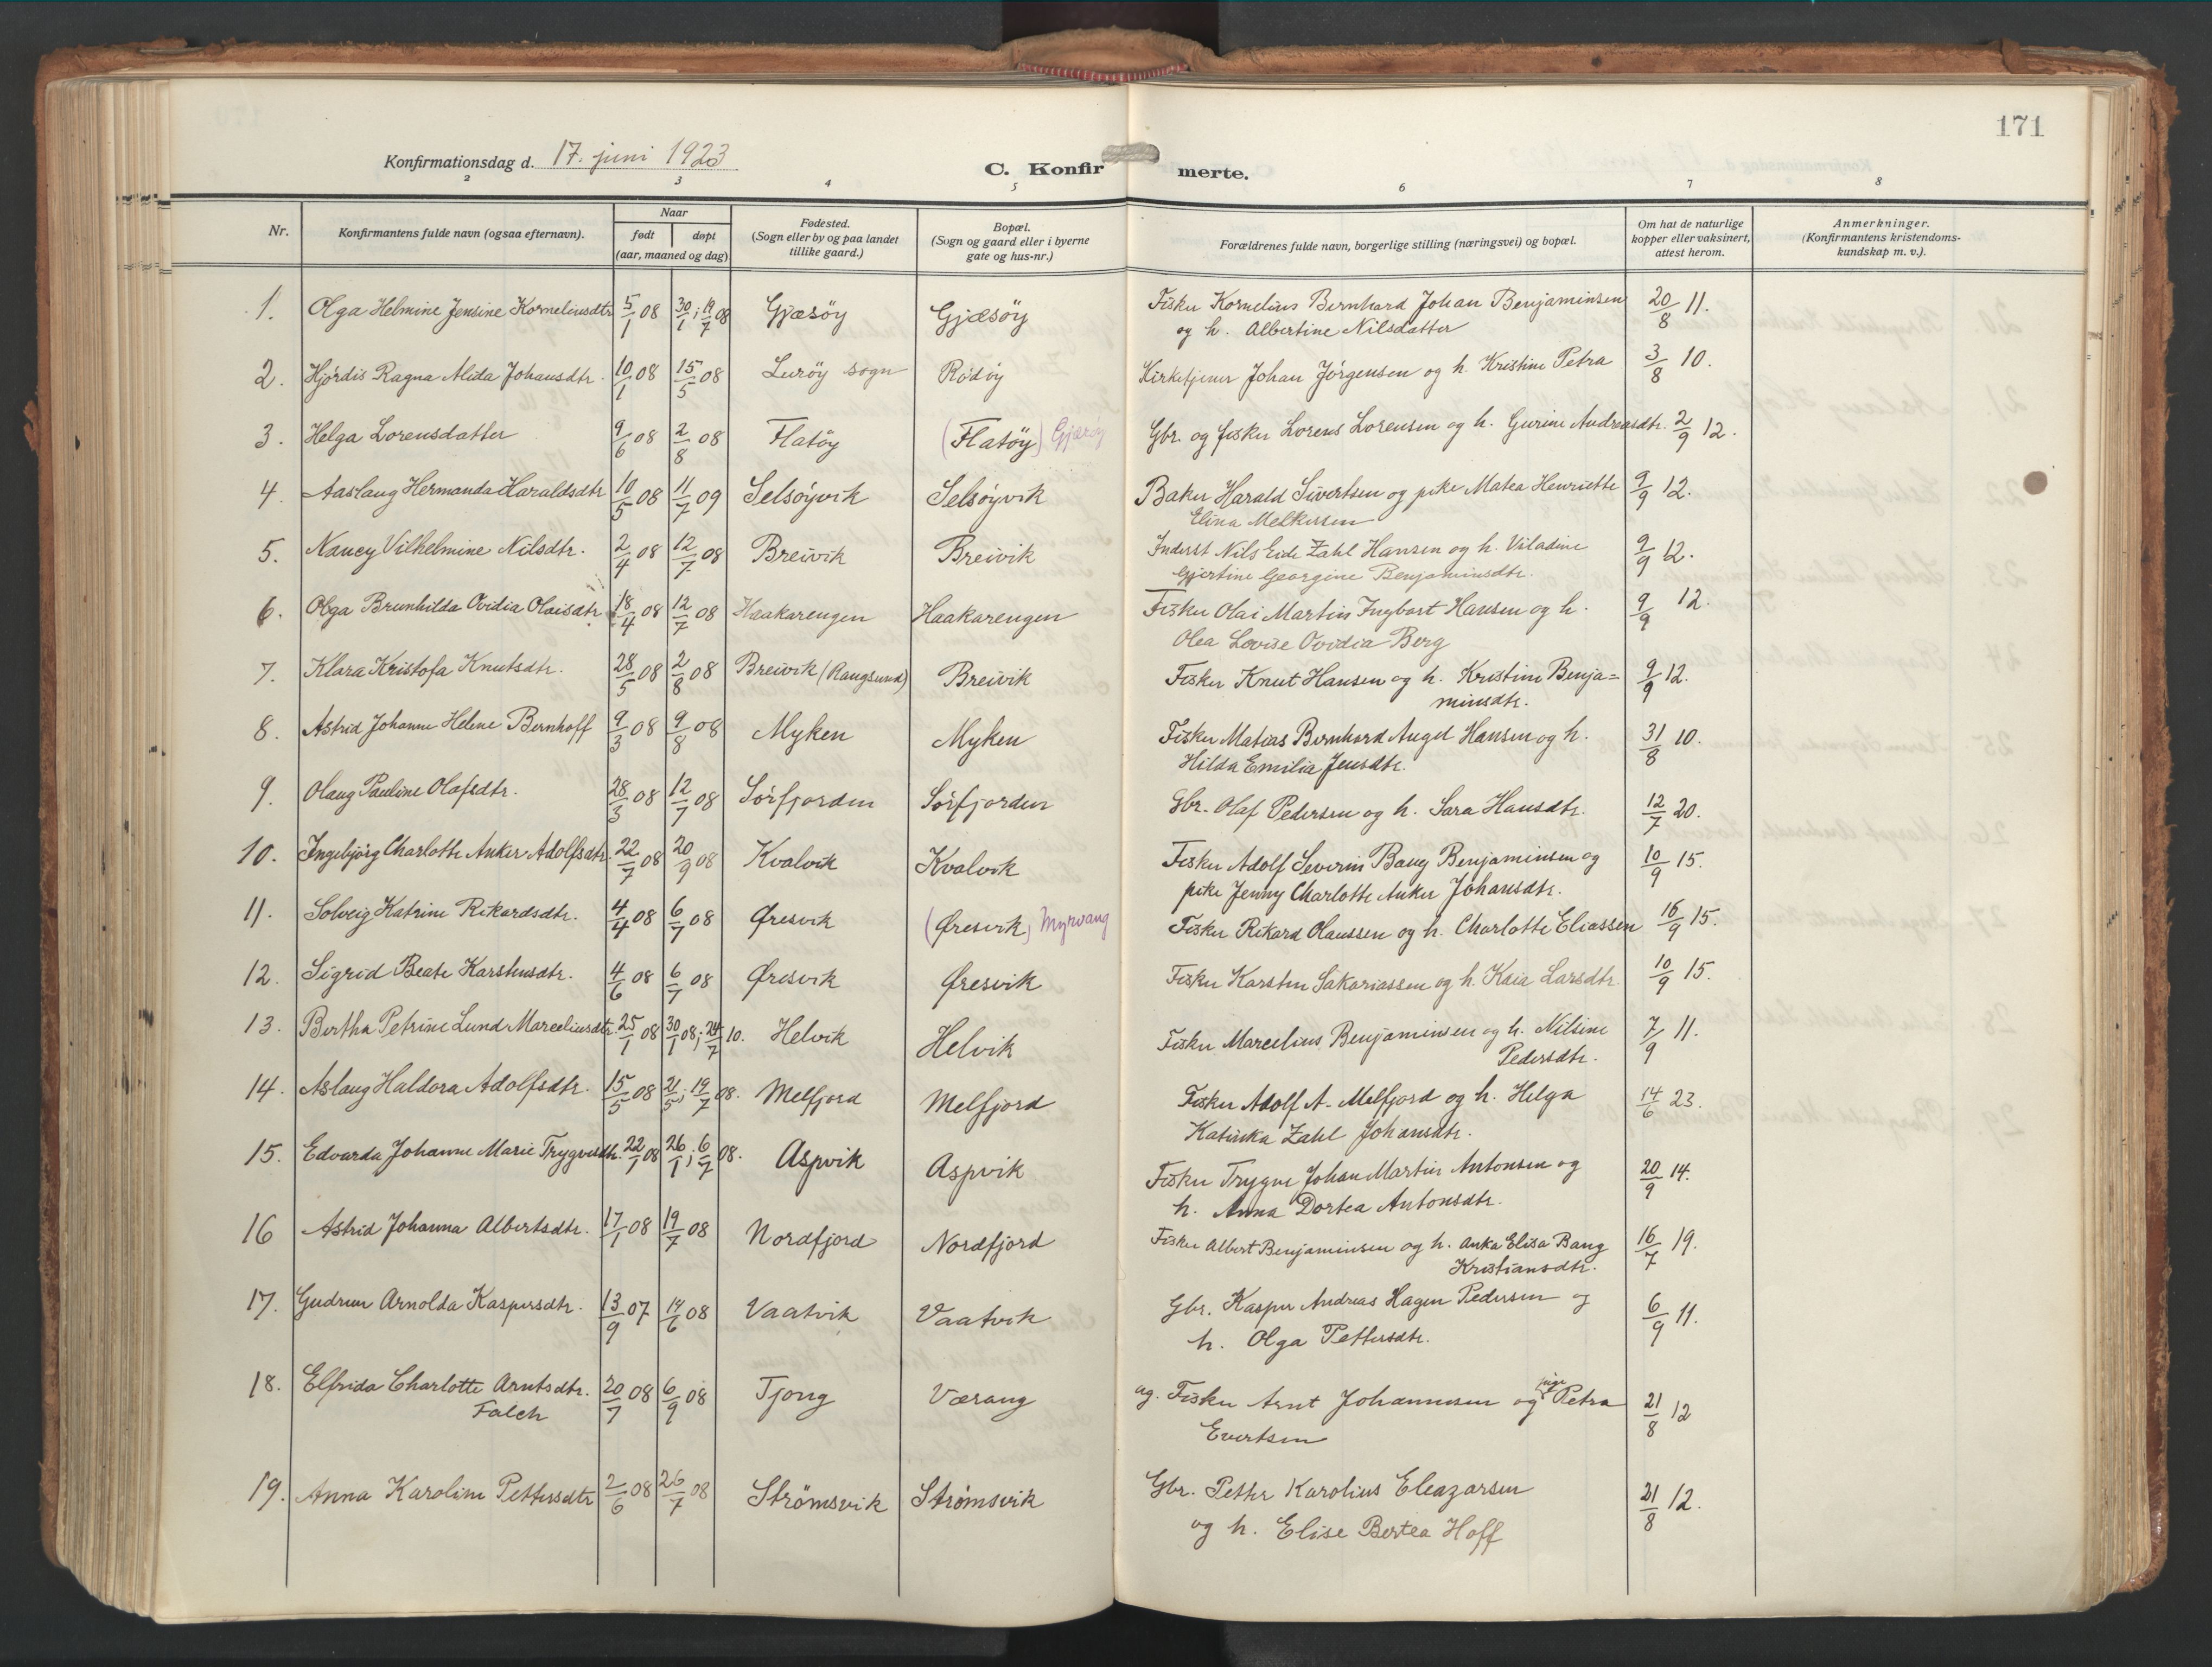 171
Konfirmationsdag d. 17. juni 1923
C. Konfirmerte.
2 3 4 5 6 7 8
Nr.
Konfirmantens fulde navn (ogsaa efternavn).
Naar
født døpt
(aar, maaned og dag)
Fødested.
(Sogn eller by og paa landet
tillike gaard.)
Bopæl.
(Sogn og gaard eller i byerne
gate og hus-nr.)
Forældrenes fulde navn, borgerlige stilling (næringsvei) og bopæl.
Om hat de naturlige
kopper eller vaksinert,
attest herom.
Anmerkninger.
(Konfirmantens kristendoms-
kundskap m. v.).
1. Olga Helmine Jensine Korneliusdtr 5/1 08 30/1; 19/7 08 Gjæsöy Gjæsöy Fisker Kornelius Bernhard Johan Benjaminsen 20/8 11.
og h. Albertine Nilsdatter
2. Hjördis Ragna Alida Johansdtr. 10/1 08 15/5 08 Luröy sogn Rödöy Kirketjener Johan Jörgensen og h. Kristine Petra 3/8 10.
3. Helga Lorensdatter 9/6 08 2/8 08 Flatöy (Flatöy) Gjæsöy Gbr. og fisker Lorens Lorensen og h. Gurine Andreasdtr. 2/9 12.
4. Aaslaug Hermanda Haraldsdtr 10/5 08 11/7 09 Selsöyvik Selsöyvik Baker Harald Sivertsen og pike Matea Henriette 9/9 12.
Elina Melkersen
5. Nancy Vilhelmine Nilsdtr. 2/4 08 12/7 08 Breivik Breivik Inderst Nils Eide Zahl Hansen og h. Viladine 9/9 12.
Gjertine Georgine Benjaminsdtr.
6. Olga Brunhilda Ovidia Olaisdtr 18/4 08 12/7 08 Haakarengen Haakarengen Fisker Olai Martin Ingbart Hansen og h. 9/9 12.
Olea Lovise Ovidia Berg
7. Klara Kristofa Knutsdtr. 28/5 08 2/8 08 Breivik (Rangsund) Breivik Fisker Knut Hansen og h. Kristine Benja= 9/9 12.
minsdtr.
8. Astrid Johanne Helene Bernhoff 9/3 08 9/8 08 Myken Myken Fisker Matias Bernhard Angel Hansen og h. 31/8 10.
Hilda Emilia Jensdtr.
9. Olaug Pauline Olafsdtr. 28/3 08 12/7 08 Sörfjorden Sörfjorden Gbr. Olaf Pedersen og h. Sara Hansdtr. 12/7 20.
10. Ingebjörg Charlotte Anker Adolfsdtr. 22/7 08 20/9 08 Kvalvik Kvalvik Fisker Adolf Severin Bang Benjaminsen og 10/9 15.
pike Jenny Charlotte Anker Johansdtr.
11. Solveig Katrine Rikardsdtr. 4/4 08 6/7 08 Øresvik (Øresvik) Myrvang Fisker Rikard Olaussen og h. Charlotte Eliassen 16/9 15.
12. Sigrid Beate Karstensdtr. 4/6 08 6/7 08 Øresvik Øresvik Fisker Karsten Sakariassen og h. Kaia Larsdtr. 10/9 15.
13. Bertha Petrine Lund Marceliusdtr. 25/1 08 30/1 08; 24/7 10. Helvik Helvik Fisker Marcelius Benjaminsen og h. Nilsine 7/9 11.
Pedersdtr.
14. Aslaug Haldora Adolfsdtr. 15/5 08 21/5; 19/7 08. Melfjord Melfjord Fisker Adolf A. Melfjord og h. Helga 14/6 23.
Katinka Zahl Johansdtr.
15. Edvarda Johanne Marie Trygvesdtr. 22/1 08 26/1; 6/7 08. Aspvik Aspvik Fisker Trygve Johan Martin Antonsen og 20/9 14.
h. Anna Dortea Antonsdtr.
16 Astrid Johanna Albertsdtr. 17/1 08 19/7 08 Nordfjord Nordfjord Fisker Albert Benjaminsen og h. Anka Elisa Bang 16/7 19.
Kristiansdtr.
17. Gudrun Arnolda Kaspersdtr. 13/9 07 14/6 08 Vaatvik Vaatvik Gbr. Kasper Andreas Hagen Pedersen og 6/9 11.
h. Olga Pettersdtr.
18. Elfrida Charlotte Arntsdtr. 20/7 08 6/9 08 Tjong Værang ug. Fisker Arnt Johannesen og pige Petra 21/8 12
Falch Evertsen
19. Anna Karoline Pettersdtr 2/6 08 26/7 08 Strömsvik Strömsvik Gbr. Petter Karolius Eleazarsen 21/8 12.
og h. Elise Bertea Hoff